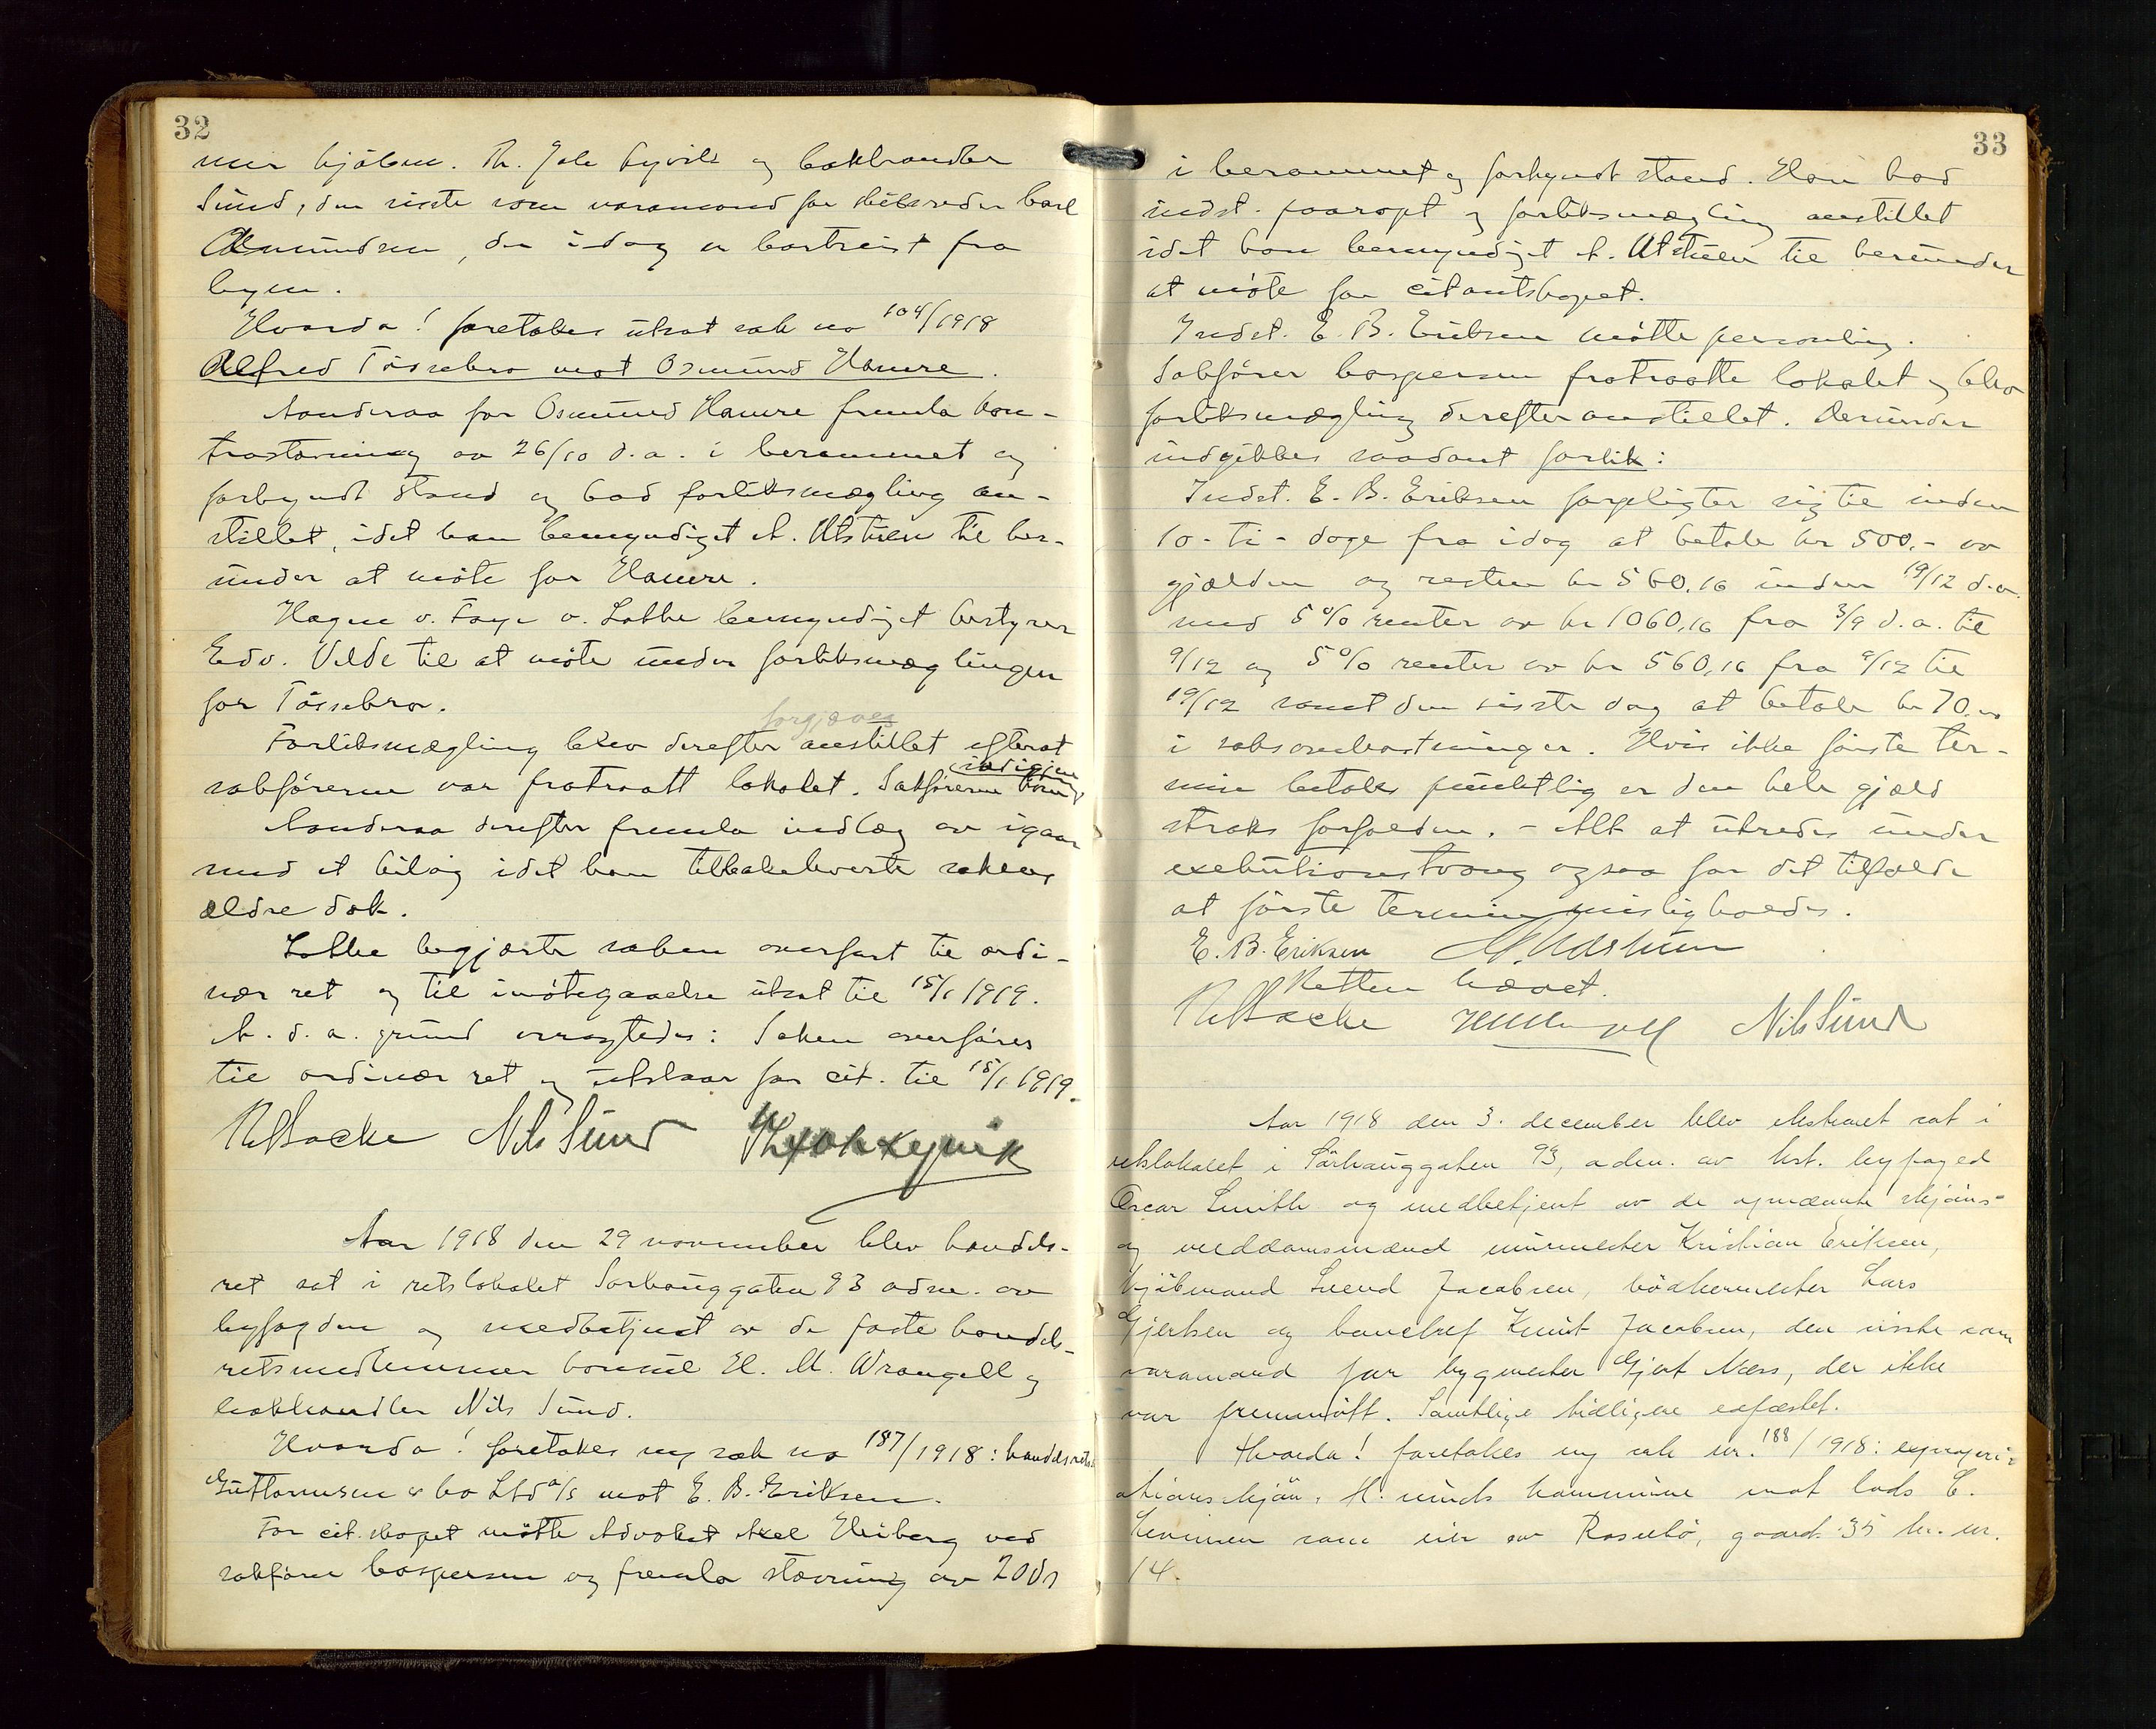 32
mer kjøbm. Th. Joh. Kyvik og bokhandler
Sund, den siste som varamand for skibsreder Carl
Amundsen, der idag er bortreist fra
byen.
Hvorda! foretokes utsat sak no 104/1918
Alfred Tössebro mot Osmund Hamre.
Aanderaa for Osmund Hamre fremla kon-
trastævning av 26/10 d.a. i berammet og
forkyndt stand og bad forliksmægling an-
stillet, idet han bemyndiget A. Utstuen til her-
under at möte for Hamre.
Hagen v. Faye v. Lothe bemyndiget bestyrer
Edv. Velde til at möte under forliksmæglingen
for Tössebro.
forgjæves
Forliksmægling blev derefter anstillet efterat
indigjen
sakförerne var fratraatt lokalet. Sakförerne kom
Aanderaa derefter fremla indlæg av igaar
med et bilag idet han tilbakeleverte sakens
ældre dok.
Lothe begjærte saken overfört til ordi-
nær ret og til imötegaaelse utsat til 15/1 1919.
A. d. a. grund vragtedes: Saken overföres
til ordinær ret og utstaar for cit. til 15/1 1919.
Nils Sund Th Joh Kyvik
Aar 1918 den 29 november blev handels-
ret sat i retslokalet Sørhauggaten 93 adm. av
byfogden og medbetjent av de faste handels-
retsmedlemmer konsul H. M. Wrangell og
bokhandler Nils Sund.
Hvorda! foretokes ny sak no 187/1918: handelsretssak
Guttormsen & Co Ltd a/s mot E. B. Eriksen.
For cit.skapet mötte Advokat Axel Heiberg ved
sakförer Caspersen og fremla stævning av 20ds
33
i berammet og forkyndt stand. Han bad
indst. paaropt og forliksmægling anstillet
idet han bemyndiget A. Utstuen til herunder
at möte for citantskapet.
Indst. E. B. Eriksen mötte personlig.
Sakförer Caspersen fratraatte lokalet og blev
forliksmægling derefter anstillet. Derunder
indgikkes saadant forlik:
Indst. E. B. Eriksen forpligter sig til inden
10 - ti - dage fra idag at betale kr 500,- av
gjælden og resten kr 560,16 inden 19/12 d.a.
med 5% renter av kr 1060,16 fra 3/9 d.a. til
9/12 og 5% renter av kr 560,16 fra 9/12 til
19/12 samt den siste dag at betale kr 70.00
i saksomkostninger. Hvis ikke förste ter-
min betales punktlig er den hele gjæld
straks forfalden. - Alt at utredes under
exekutionstvang ogsaa for det tilfælde
at förste termin misligholdes.
E. B. Eriksen A. Utstuen
Retten hævet.
Nils Sund
Aar 1918 den 3. december blev ekstraret sat i
retslokalet i Sörhauggaten 93, adm. av kst. byfoged
Oscar Smith og medbetjent av de opnævnte skjöns-
og meddomsmænd murmester Kristian Eriksen,
kjöbmand Svend Jacobsen, bödkermester Lars
Gjertsen og banchef Knut Jacobsen, den siste som
varamand for bygmester Gjert Næss, der ikke
var fremmött. Samtlige tidligere edfæstet.
Hvorda! foretokes ny sak nr. 188/1918: expropri-
ationsskjön. H.sunds kommune mot lods C.
som eier av Rossebö, gaardnr. 35 br. nr.
14.